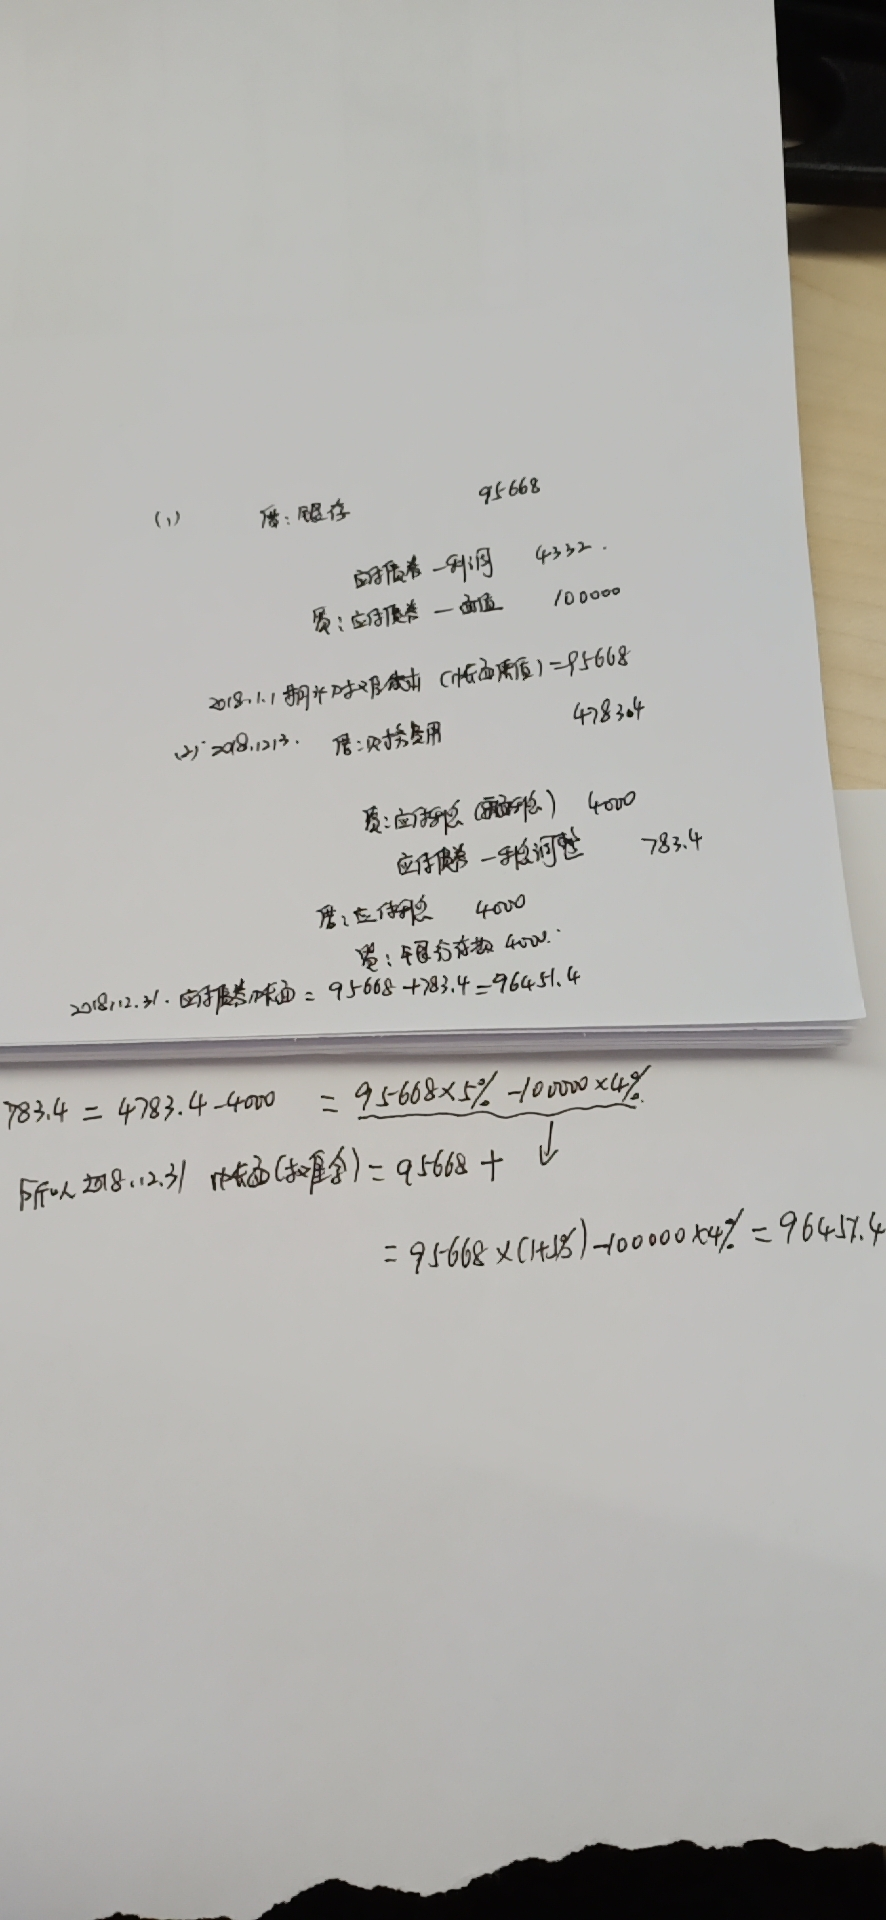 (1) 借：银存 95668
应付债券—利调 4332.
贷：应付债券—面值 100000
2018.1.1 期初摊余成本（账面价值）=95668
(2) 2018.12.31. 借：财务费用 4783.4
贷：应付利息（票面利息） 4000
应付债券—利息调整 783.4
借：应付利息 4000
贷：银行存款 4000.
2018.12.31. 应付债券账面 = 95668+783.4=96451.4
783.4 = 4783.4-4000 = 95668×5% -100000×4%
所以 2018.12.31 账面(摊余) = 95668 + ↓
= 95668×(1+5%) -100000×4% = 96451.4